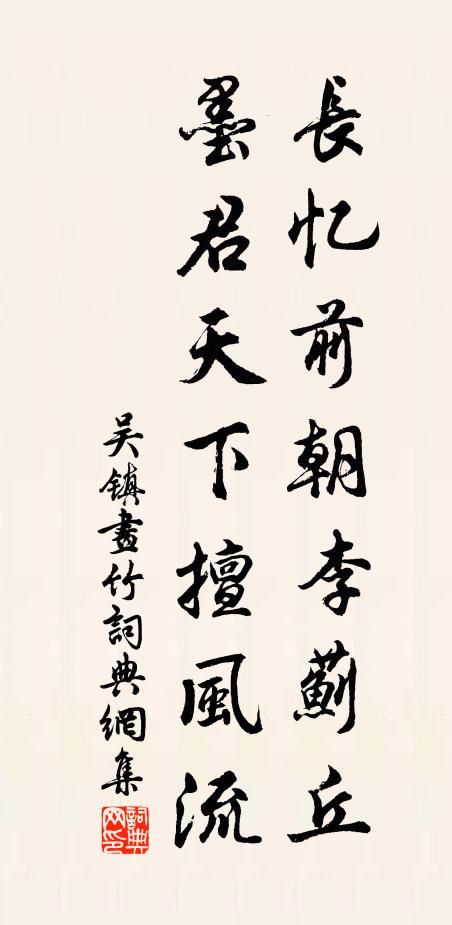 長忆前朝李薊丘
墨君天下擅風流
吴镇畫竹詞典網集
詞典網印